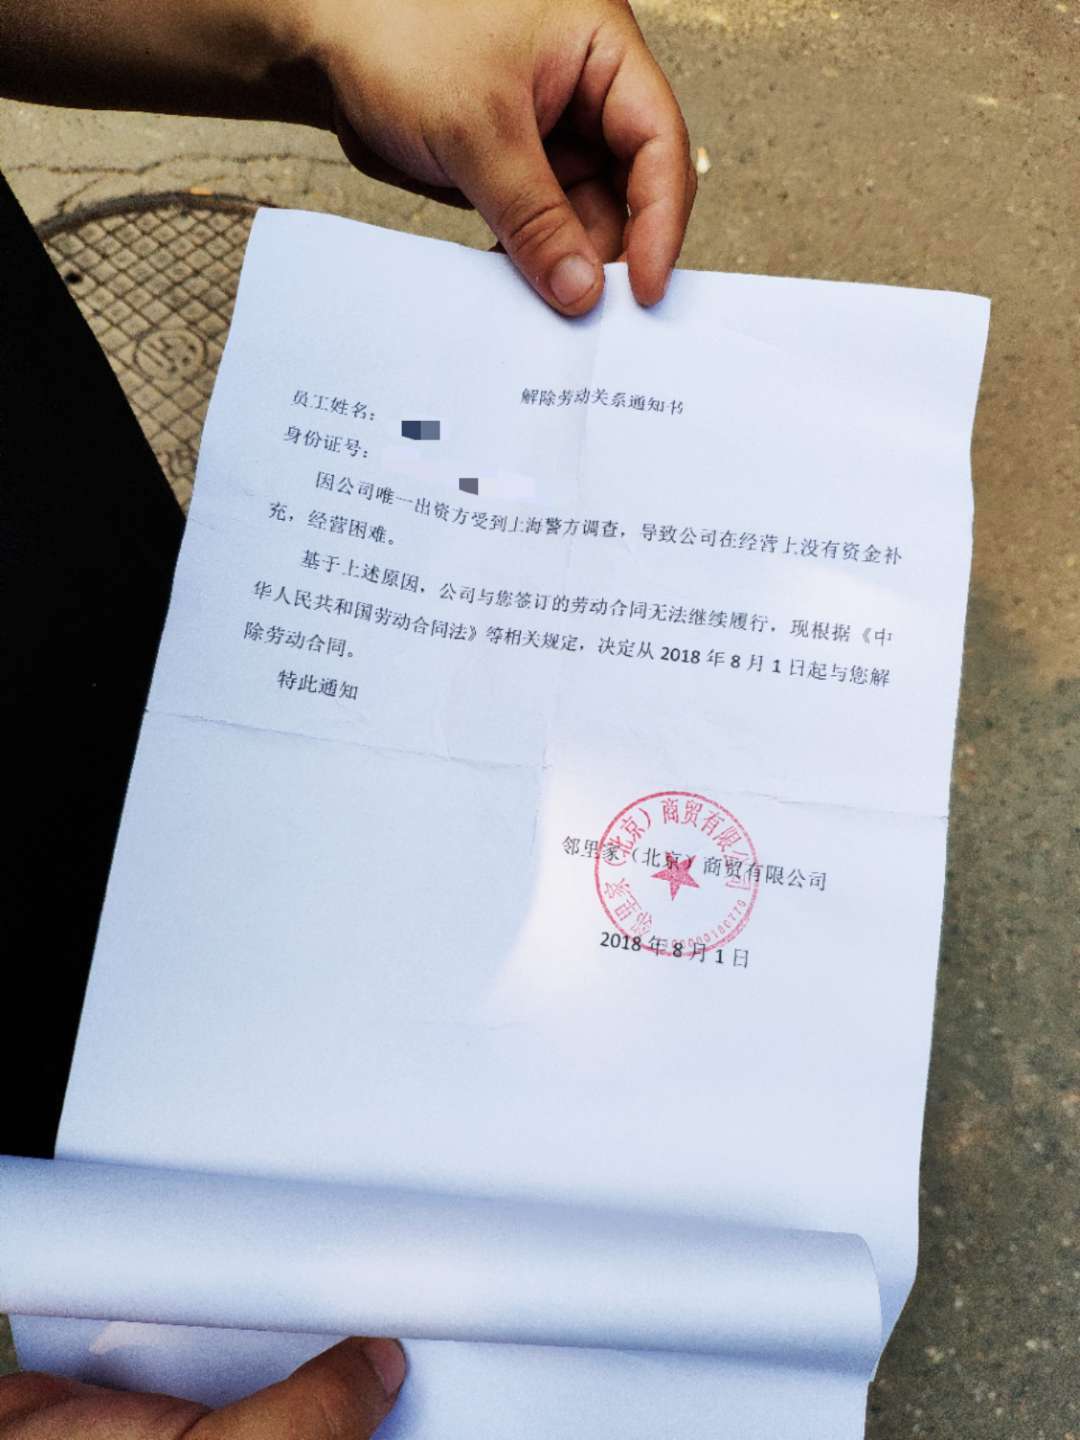 解除劳动关系通知书
员工姓名：
身份证号：
因公司唯一出资方受到上海警方调查，导致公司在经营上没有资金补
充，经营困难。
基于上述原因，公司与您签订的劳动合同无法继续履行，现根据《中
华人民共和国劳动合同法》等相关规定，决定从 2018 年 8 月 1 日起与您解
除劳动合同。
特此通知
邻里家（北京）商贸有限公司
2018 年 8 月 1 日
邻里家（北京）商贸有限公司